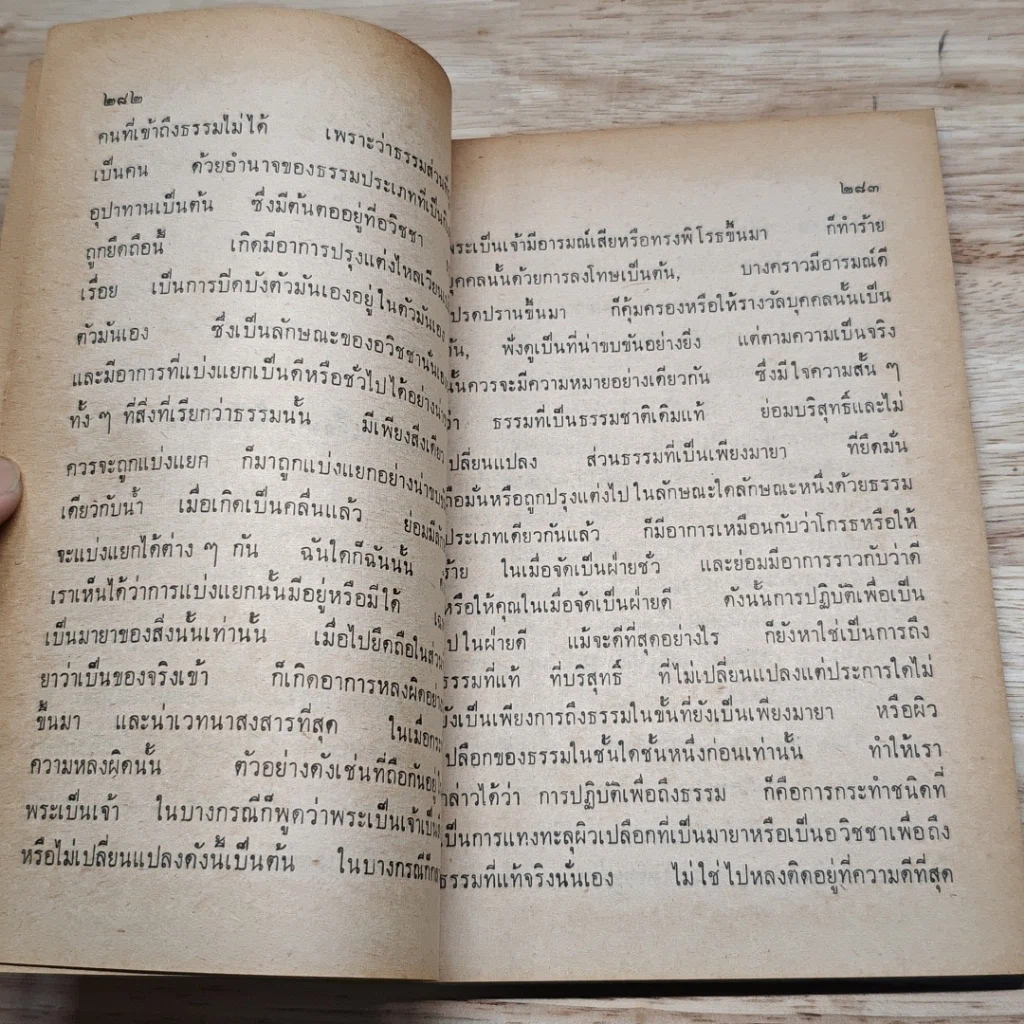 ๒๘๒
คนที่เข้าถึงธรรมไม่ได้ เพราะว่าธรรมส่วนที่
เป็นคน ด้วยอำนาจของธรรมประเภทที่เป็นกิ
อุปาทานเป็นต้น ซึ่งมีต้นตออยู่ที่อวิชชา
ถูกยึดถือนี้ เกิดมีอาการปรุงแต่งไหลเวียน
เรื่อย เป็นการปิดบังตัวมันเองอยู่ในตัวมันเอง
ตัวมันเอง ซึ่งเป็นลักษณะของอวิชชานั่นเอง
และมีอาการที่แบ่งแยกเป็นดีหรือชั่วไปได้อย่าง
ทั้ง ๆ ที่สิ่งที่เรียกว่าธรรมนั้น มีเพียงสิ่งเดียว
ควรจะถูกแบ่งแยก ก็มาถูกแบ่งแยกอย่างน่า
เดียวกับน้ำ เมื่อเกิดเป็นคลื่นแล้ว ย่อมมี
จะแบ่งแยกได้ต่าง ๆ กัน ฉันใดก็ฉันนั้น
เราเห็นได้ว่าการแบ่งแยกนั้นมีอยู่หรือมีได้
เป็นมายาของสิ่งนั้นเท่านั้น เมื่อไปยึดถือในส่วน
ยาว่าเป็นของจริงเข้า ก็เกิดอาการหลงผิดอย่าง
ขึ้นมา และน่าเวทนาสงสารที่สุด ในเมื่อ
ความหลงผิดนั้น ตัวอย่างดังเช่นที่ถือกันอยู่
พระเป็นเจ้า ในบางกรณีก็พูดว่าพระเป็นเจ้าเป็น
หรือไม่เปลี่ยนแปลงดังนี้เป็นต้น ในบางกรณีก็
๒๘๓
พระเป็นเจ้ามีอารมณ์เสียหรือทรงพิโรธขึ้นมา ก็ทำร้าย
บุคคลนั้นด้วยการลงโทษเป็นต้น, บางคราวมีอารมณ์ดี
โปรดปรานขึ้นมา ก็คุ้มครองหรือให้รางวัลบุคคลนั้นเป็น
ต้น, ฟังดูเป็นที่น่าขบขันอย่างยิ่ง แต่ตามความเป็นจริง
นั้นควรจะมีความหมายอย่างเดียวกัน ซึ่งมีใจความสั้น ๆ
ว่า ธรรมที่เป็นธรรมชาติเดิมแท้ ย่อมบริสุทธิ์และไม่
เปลี่ยนแปลง ส่วนธรรมที่เป็นเพียงมายา ที่ยึดมั่น
ถือมั่นหรือถูกปรุงแต่งไปในลักษณะใดลักษณะหนึ่งด้วยธรรม
ประเภทเดียวกันแล้ว ก็มีอาการเหมือนกับว่าโกรธหรือให้
ร้าย ในเมื่อจัดเป็นฝ่ายชั่ว และย่อมมีอาการราวกับว่าดี
หรือให้คุณในเมื่อจัดเป็นฝ่ายดี ดังนั้นการปฏิบัติเพื่อเป็น
ไปในฝ่ายดี แม้จะดีที่สุดอย่างไร ก็ยังหาใช่เป็นการถึง
ธรรมที่แท้ ที่บริสุทธิ์ ที่ไม่เปลี่ยนแปลงแต่ประการใดไม่
ยังเป็นเพียงการถึงธรรมในขั้นที่ยังเป็นเพียงมายา หรือผิว
เปลือกของธรรมในชั้นใดชั้นหนึ่งก่อนเท่านั้น ทำให้เรา
กล่าวได้ว่า การปฏิบัติเพื่อถึงธรรม ก็คือการกระทำชนิดที่
เป็นการแทงทะลุผิวเปลือกที่เป็นมายาหรือเป็นอวิชชาเพื่อถึง
ธรรมที่แท้จริงนั่นเอง ไม่ใช่ไปหลงติดอยู่ที่ความดีที่สุด